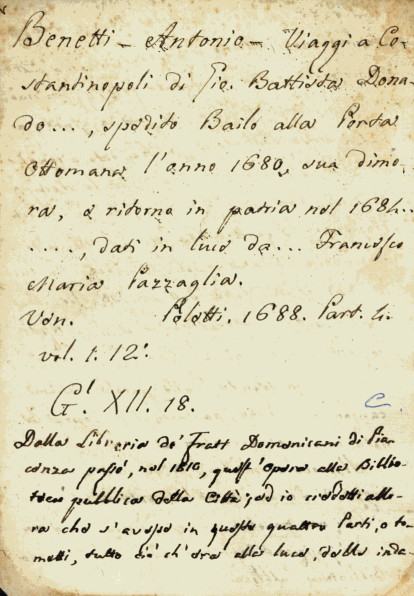 Benetti - Antonio - Viaggi a Co-
stantinopoli di Gio. Battista Dona-
do..., spedito Bailo alla Porta
Ottomana l'anno 1680, sua dimo-
ra, e ritorno in patria nel 1684..
...., dati in luce da... Francesco
Maria Pazzaglia.
Ven. Poletti. 1688. Part. 4.
vol. 1. 12.°
G.' XII. 18.
C
Dalla Libreria de' Frati Domenicani di Pia-
cenza passò, nel 1810, quest'Opera alla Biblio-
teca pubblica della Città; ed io credetti allo-
ra che s'avesse in queste quattro Parti, o to-
metti, tutto ciò ch'era alla luce, dalla inde-